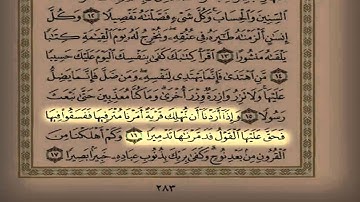 ٱلسِّنِينَ وَٱلْحِسَابَ وَكُلَّ شَىْءٍ فَصَّلْنَٰهُ تَفْصِيلًا ١٢ وَكُلَّ
إِنسَٰنٍ أَلْزَمْنَٰهُ طَٰٓئِرَهُۥ فِى عُنُقِهِۦ وَنُخْرِجُ لَهُۥ يَوْمَ ٱلْقِيَٰمَةِ كِتَٰبًا
يَلْقَىٰهُ مَنشُورًا ١٣ ٱقْرَأْ كِتَٰبَكَ كَفَىٰ بِنَفْسِكَ ٱلْيَوْمَ عَلَيْكَ حَسِيبًا
١٤ مَّنِ ٱهْتَدَىٰ فَإِنَّمَا يَهْتَدِى لِنَفْسِهِۦ وَمَن ضَلَّ فَإِنَّمَا يَضِلُّ
عَلَيْهَا وَلَا تَزِرُ وَازِرَةٌ وِزْرَ أُخْرَىٰ وَمَا كُنَّا مُعَذِّبِينَ حَتَّىٰ نَبْعَثَ
رَسُولًا ١٥ وَإِذَآ أَرَدْنَآ أَن نُّهْلِكَ قَرْيَةً أَمَرْنَا مُتْرَفِيهَا فَفَسَقُوا۟ فِيهَا
فَحَقَّ عَلَيْهَا ٱلْقَوْلُ فَدَمَّرْنَٰهَا تَدْمِيرًا ١٦ وَكَمْ أَهْلَكْنَا مِنَ
ٱلْقُرُونِ مِنۢ بَعْدِ نُوحٍ وَكَفَىٰ بِرَبِّكَ بِذُنُوبِ عِبَادِهِۦ خَبِيرًۢا بَصِيرًا ١٧
٢٨٣